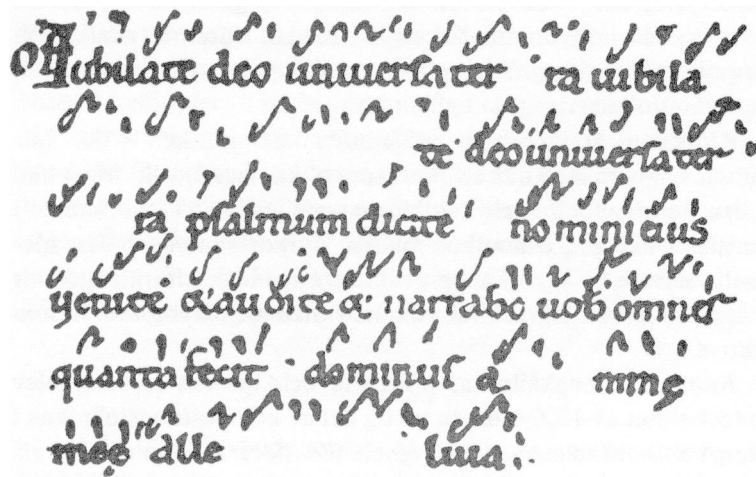 Iubilate deo uniuersa ter ra iubila
te deo uniuersa ter
ra psalmum dicite nomini eius
uenite & audite & narrabo uob omnes
quanta fecit dominus a nime
alle luia